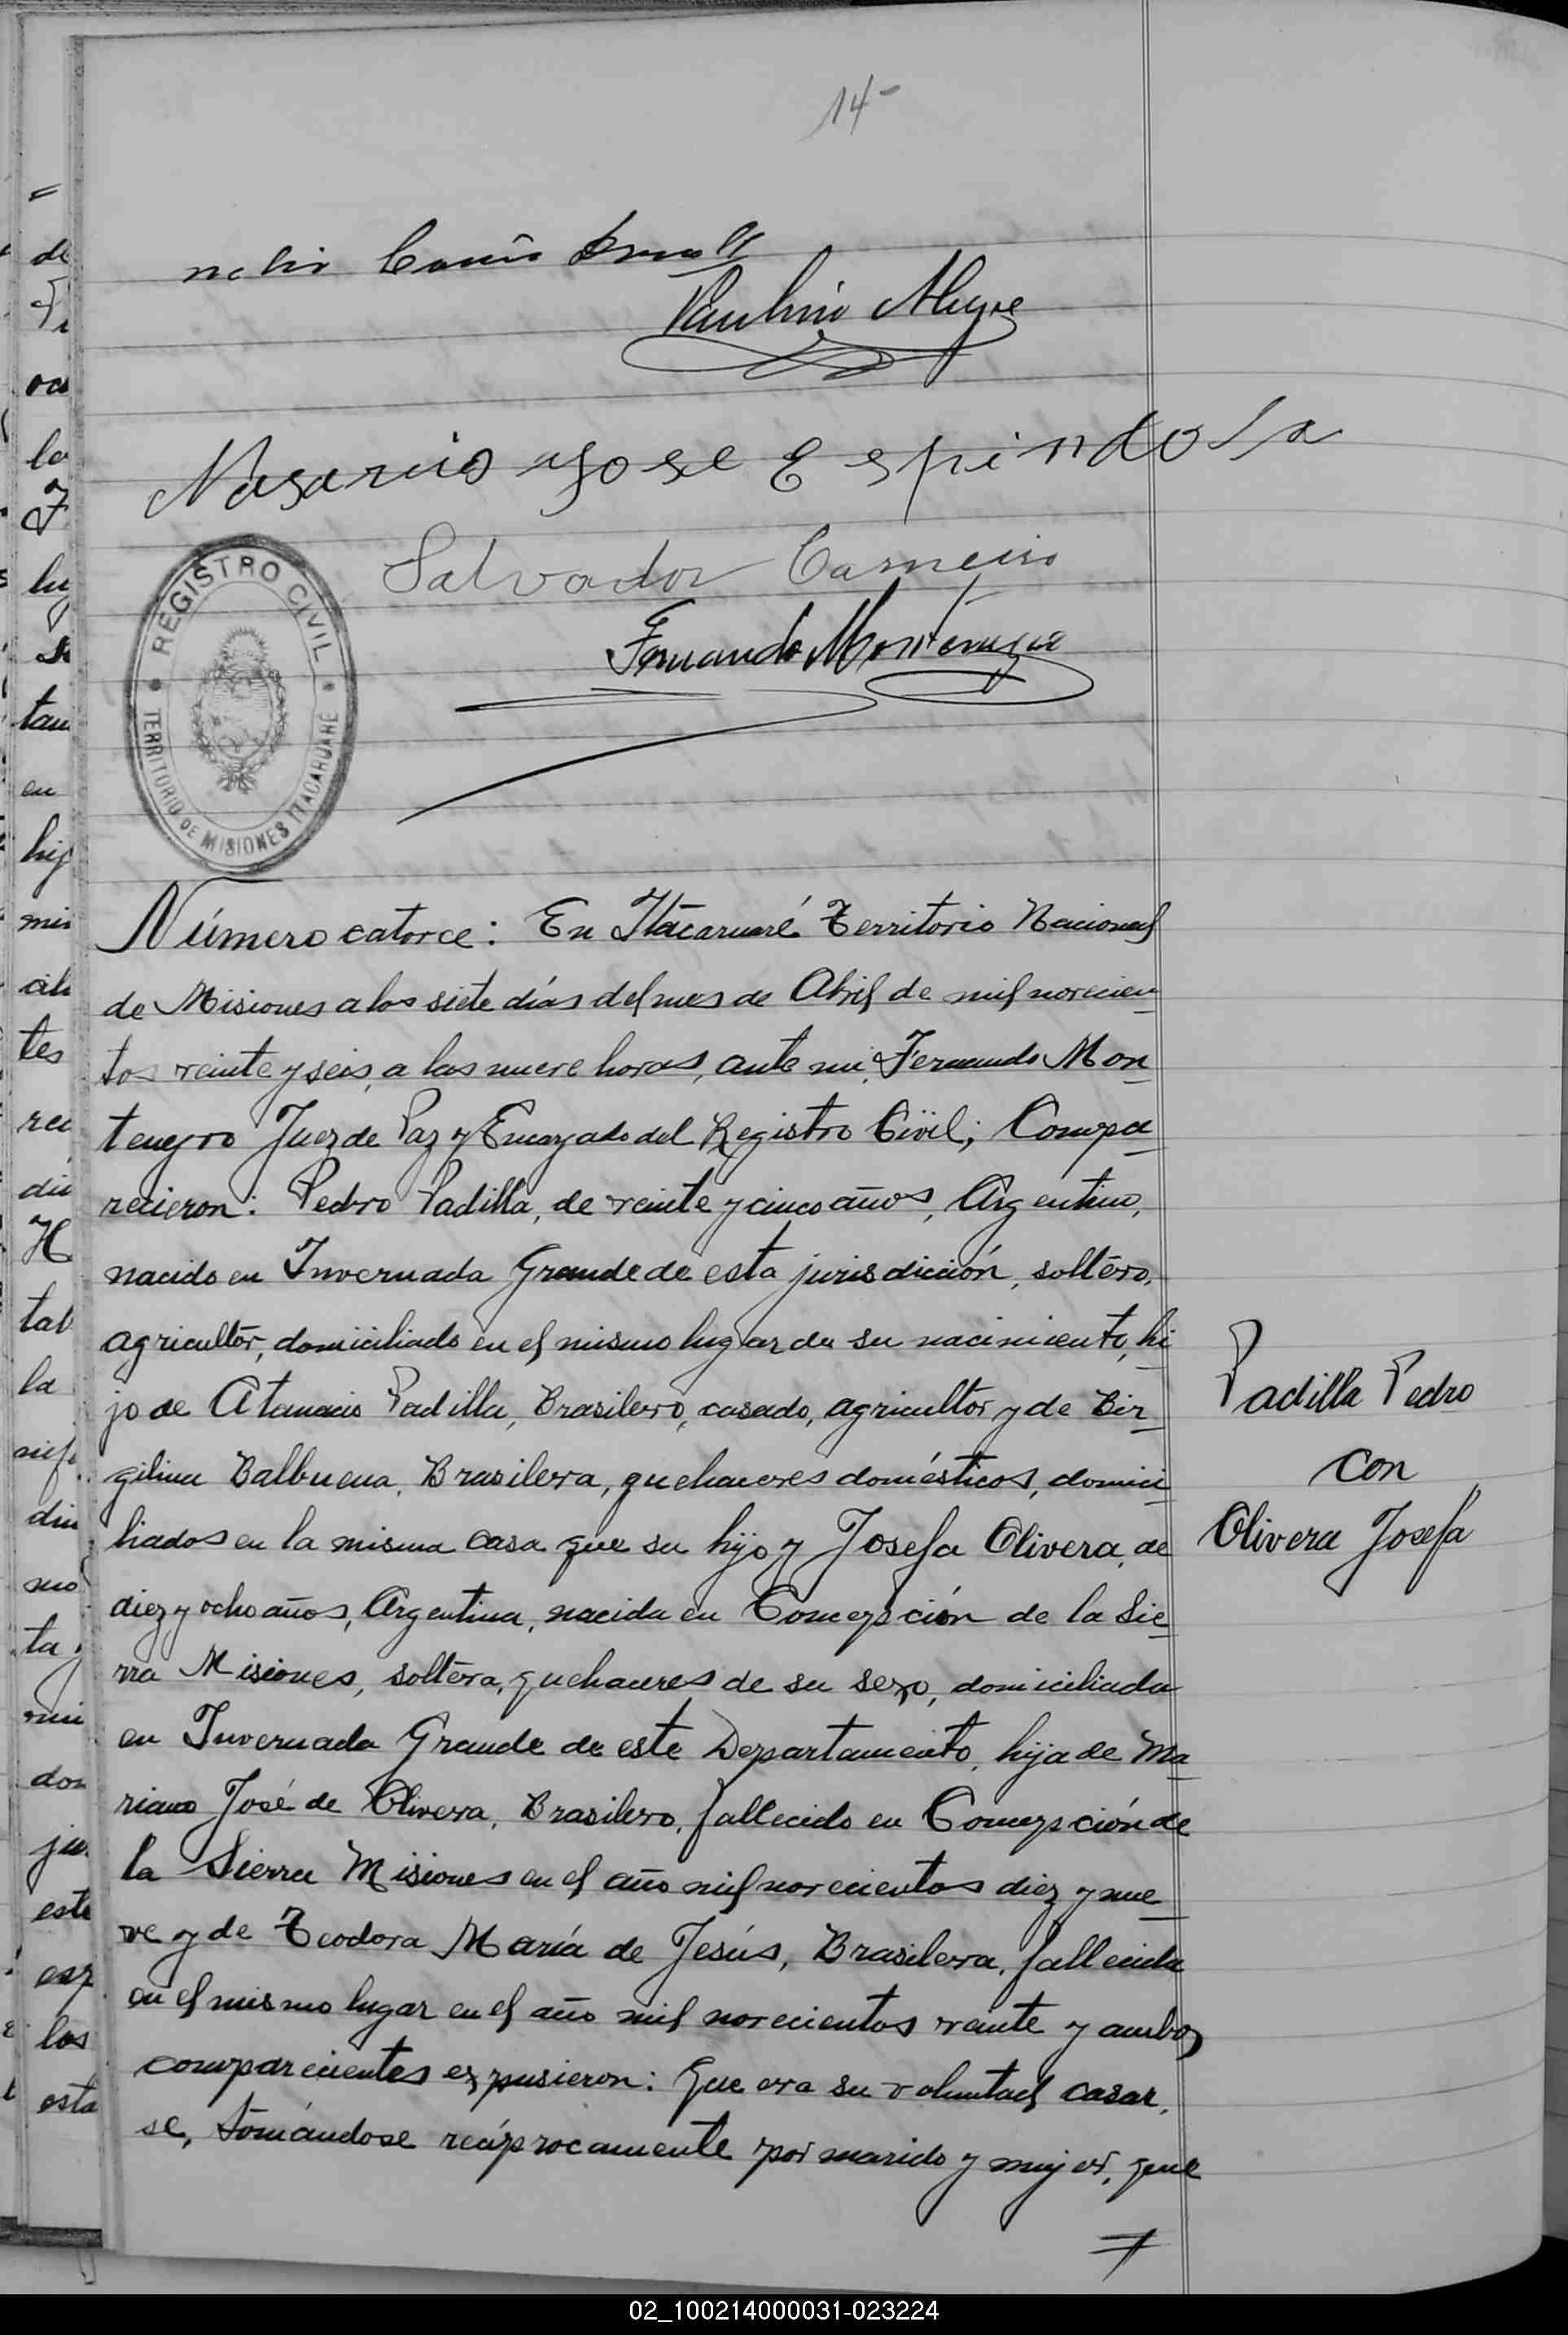 14-
Paulino Alegre
Nasario Jose Espindola
Salvador Carneiro
Fernando Montenegro
REGISTRO CIVIL
TERRITORIO DE MISIONES ITACARUARE
Número catorce: En Itacaruaré Territorio Nacional
de Misiones a los siete días del mes de Abril de mil novecien-
tos veinte y seis, a las nueve horas, ante mi, Fernando Mon-
tenegro Juez de Paz y Encargado del Registro Civil; Compa-
recieron: Pedro Padilla, de veinte y cinco años, Argentino,
nacido en Invernada Grande de esta jurisdicción, soltero,
agricultor, domiciliado en el mismo lugar de su nacimiento, hi-
jo de Atanacio Padilla, Brasilero, casado, agricultor y de Bir-
gilina Balbuena, Brasilera, quehaceres domésticos, domici-
liados en la misma casa que su hijo y Josefa Olivera, de
diez y ocho años, Argentina, nacida en Concepción de la Sie-
rra Misiones, soltera, quehaceres de su sexo, domiciliada
en Invernada Grande de este Departamento, hija de Ma-
riano José de Olivera, Brasilero, fallecido en Concepción de
la Sierra Misiones en el año mil novecientos diez y nue-
ve y de Teodora María de Jesús, Brasilera, fallecida
en el mismo lugar en el año mil novecientos veinte y ambos
comparecientes expusieron: Que era su voluntad casar-
se, tomándose recíprocamente por marido y mujer, que
Padilla Pedro
con
Olivera Josefa
=
de
oc
la
tan
en
hij
mis
tes
rec
H
tal
la
ta
don
este
esp
los
esta
02_100214000031-023224